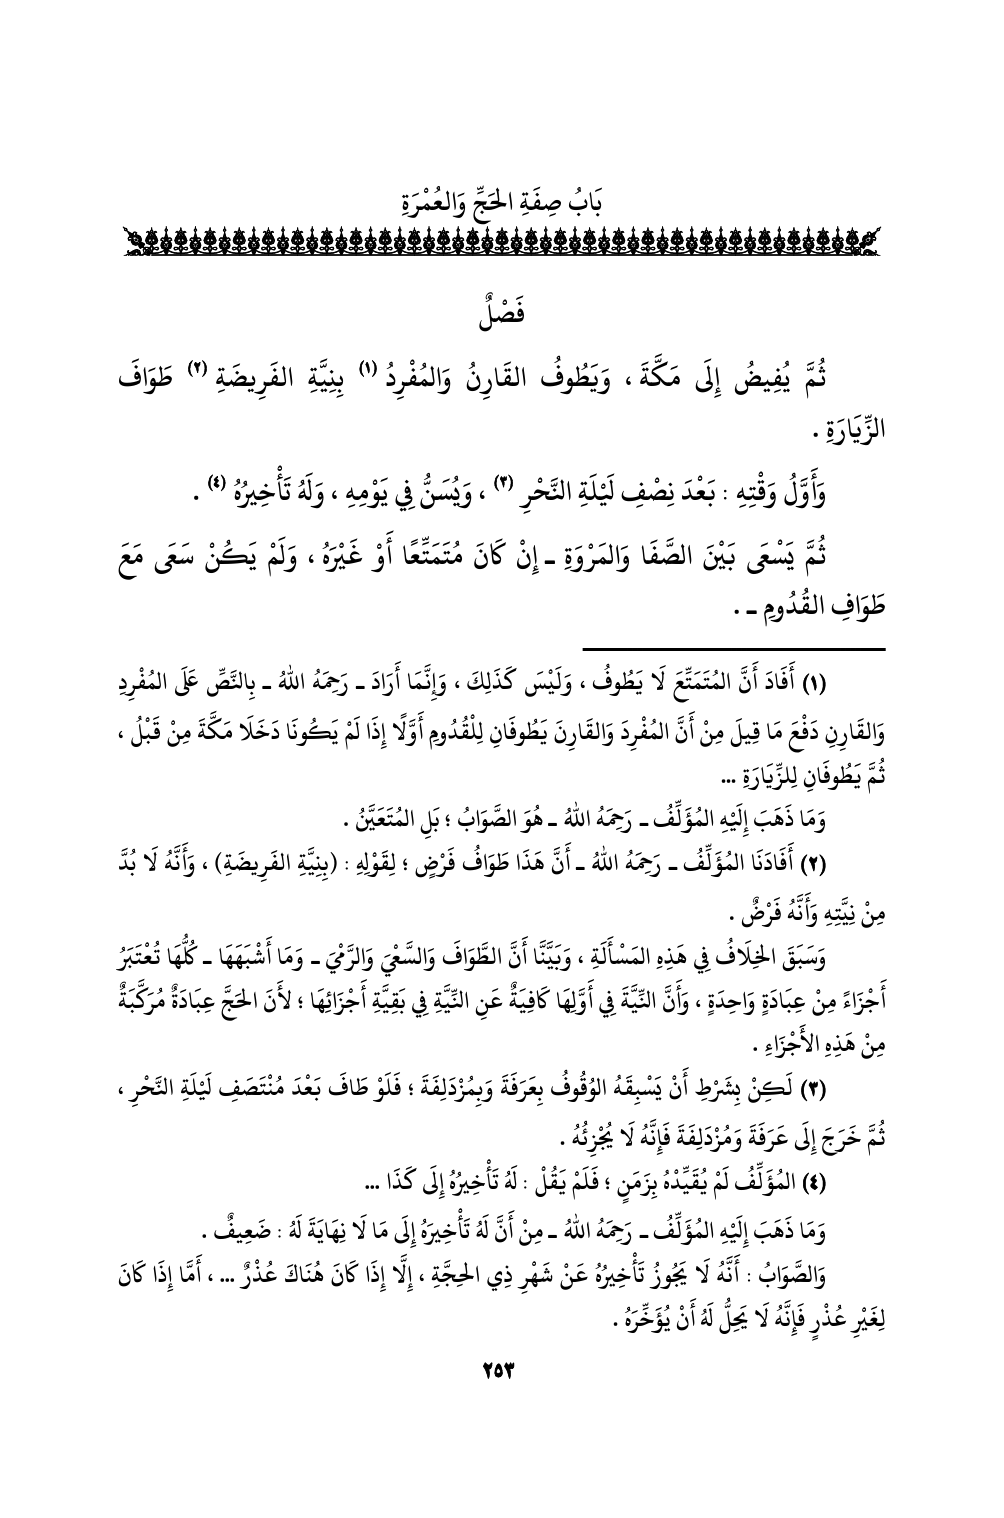 بَابُ صِفَةِ الحَجِّ وَالعُمْرَةِ
فَصْلٌ
ثُمَّ يُفِيضُ إِلَى مَكَّةَ ، وَيَطُوفُ القَارِنُ وَالمُفْرِدُ (١) بِنِيَّةِ الفَرِيضَةِ (٢) طَوَافَ
الزِّيَارَةِ .
وَأَوَّلُ وَقْتِهِ : بَعْدَ نِصْفِ لَيْلَةِ النَّحْرِ (٣) ، وَيُسَنُّ فِي يَوْمِهِ ، وَلَهُ تَأْخِيرُهُ (٤) .
ثُمَّ يَسْعَى بَيْنَ الصَّفَا وَالمَرْوَةِ ـ إِنْ كَانَ مُتَمَتِّعًا أَوْ غَيْرَهُ ، وَلَمْ يَكُنْ سَعَى مَعَ
طَوَافِ القُدُومِ ـ .
(١) أَفَادَ أَنَّ المُتَمَتِّعَ لَا يَطُوفُ ، وَلَيْسَ كَذَلِكَ ، وَإِنَّمَا أَرَادَ ـ رَحِمَهُ اللهُ ـ بِالنَّصِّ عَلَى المُفْرِدِ
وَالقَارِنِ دَفْعَ مَا قِيلَ مِنْ أَنَّ المُفْرِدَ وَالقَارِنَ يَطُوفَانِ لِلْقُدُومِ أَوَّلًا إِذَا لَمْ يَكُونَا دَخَلَا مَكَّةَ مِنْ قَبْلُ ،
ثُمَّ يَطُوفَانِ لِلزِّيَارَةِ ...
وَمَا ذَهَبَ إِلَيْهِ المُؤَلِّفُ ـ رَحِمَهُ اللهُ ـ هُوَ الصَّوَابُ ؛ بَلِ المُتَعَيَّنُ .
(٢) أَفَادَنَا المُؤَلِّفُ ـ رَحِمَهُ اللهُ ـ أَنَّ هَذَا طَوَافُ فَرْضٍ ؛ لِقَوْلِهِ : (بِنِيَّةِ الفَرِيضَةِ) ، وَأَنَّهُ لَا بُدَّ
مِنْ نِيَّتِهِ وَأَنَّهُ فَرْضٌ .
وَسَبَقَ الخِلَافُ فِي هَذِهِ المَسْأَلَةِ ، وَبَيَّنَّا أَنَّ الطَّوَافَ وَالسَّعْيَ وَالرَّمْيَ ـ وَمَا أَشْبَهَهَا ـ كُلُّهَا تُعْتَبَرُ
أَجْزَاءً مِنْ عِبَادَةٍ وَاحِدَةٍ ، وَأَنَّ النِّيَّةَ فِي أَوَّلِهَا كَافِيَةٌ عَنِ النِّيَّةِ فِي بَقِيَّةِ أَجْزَائِهَا ؛ لأَنَ الحَجَّ عِبَادَةٌ مُرَكَّبَةٌ
مِنْ هَذِهِ الأَجْزَاءِ .
(٣) لَكِنْ بِشَرْطِ أَنْ يَسْبِقَهُ الوُقُوفُ بِعَرَفَةَ وَبِمُزْدَلِفَةَ ؛ فَلَوْ طَافَ بَعْدَ مُنْتَصَفِ لَيْلَةِ النَّحْرِ ،
ثُمَّ خَرَجَ إِلَى عَرَفَةَ وَمُزْدَلِفَةَ فَإِنَّهُ لَا يُجْزِئُهُ .
(٤) المُؤَلِّفُ لَمْ يُقَيِّدْهُ بِزَمَنٍ ؛ فَلَمْ يَقُلْ : لَهُ تَأْخِيرُهُ إِلَى كَذَا ...
وَمَا ذَهَبَ إِلَيْهِ المُؤَلِّفُ ـ رَحِمَهُ اللهُ ـ مِنْ أَنَّ لَهُ تَأْخِيرَهُ إِلَى مَا لَا نِهَايَةَ لَهُ : ضَعِيفٌ .
وَالصَّوَابُ : أَنَّهُ لَا يَجُوزُ تَأْخِيرُهُ عَنْ شَهْرِ ذِي الحِجَّةِ ، إِلَّا إِذَا كَانَ هُنَاكَ عُذْرٌ ... ، أَمَّا إِذَا كَانَ
لِغَيْرِ عُذْرٍ فَإِنَّهُ لَا يَحِلُّ لَهُ أَنْ يُؤَخِّرَهُ .
٢٥٣